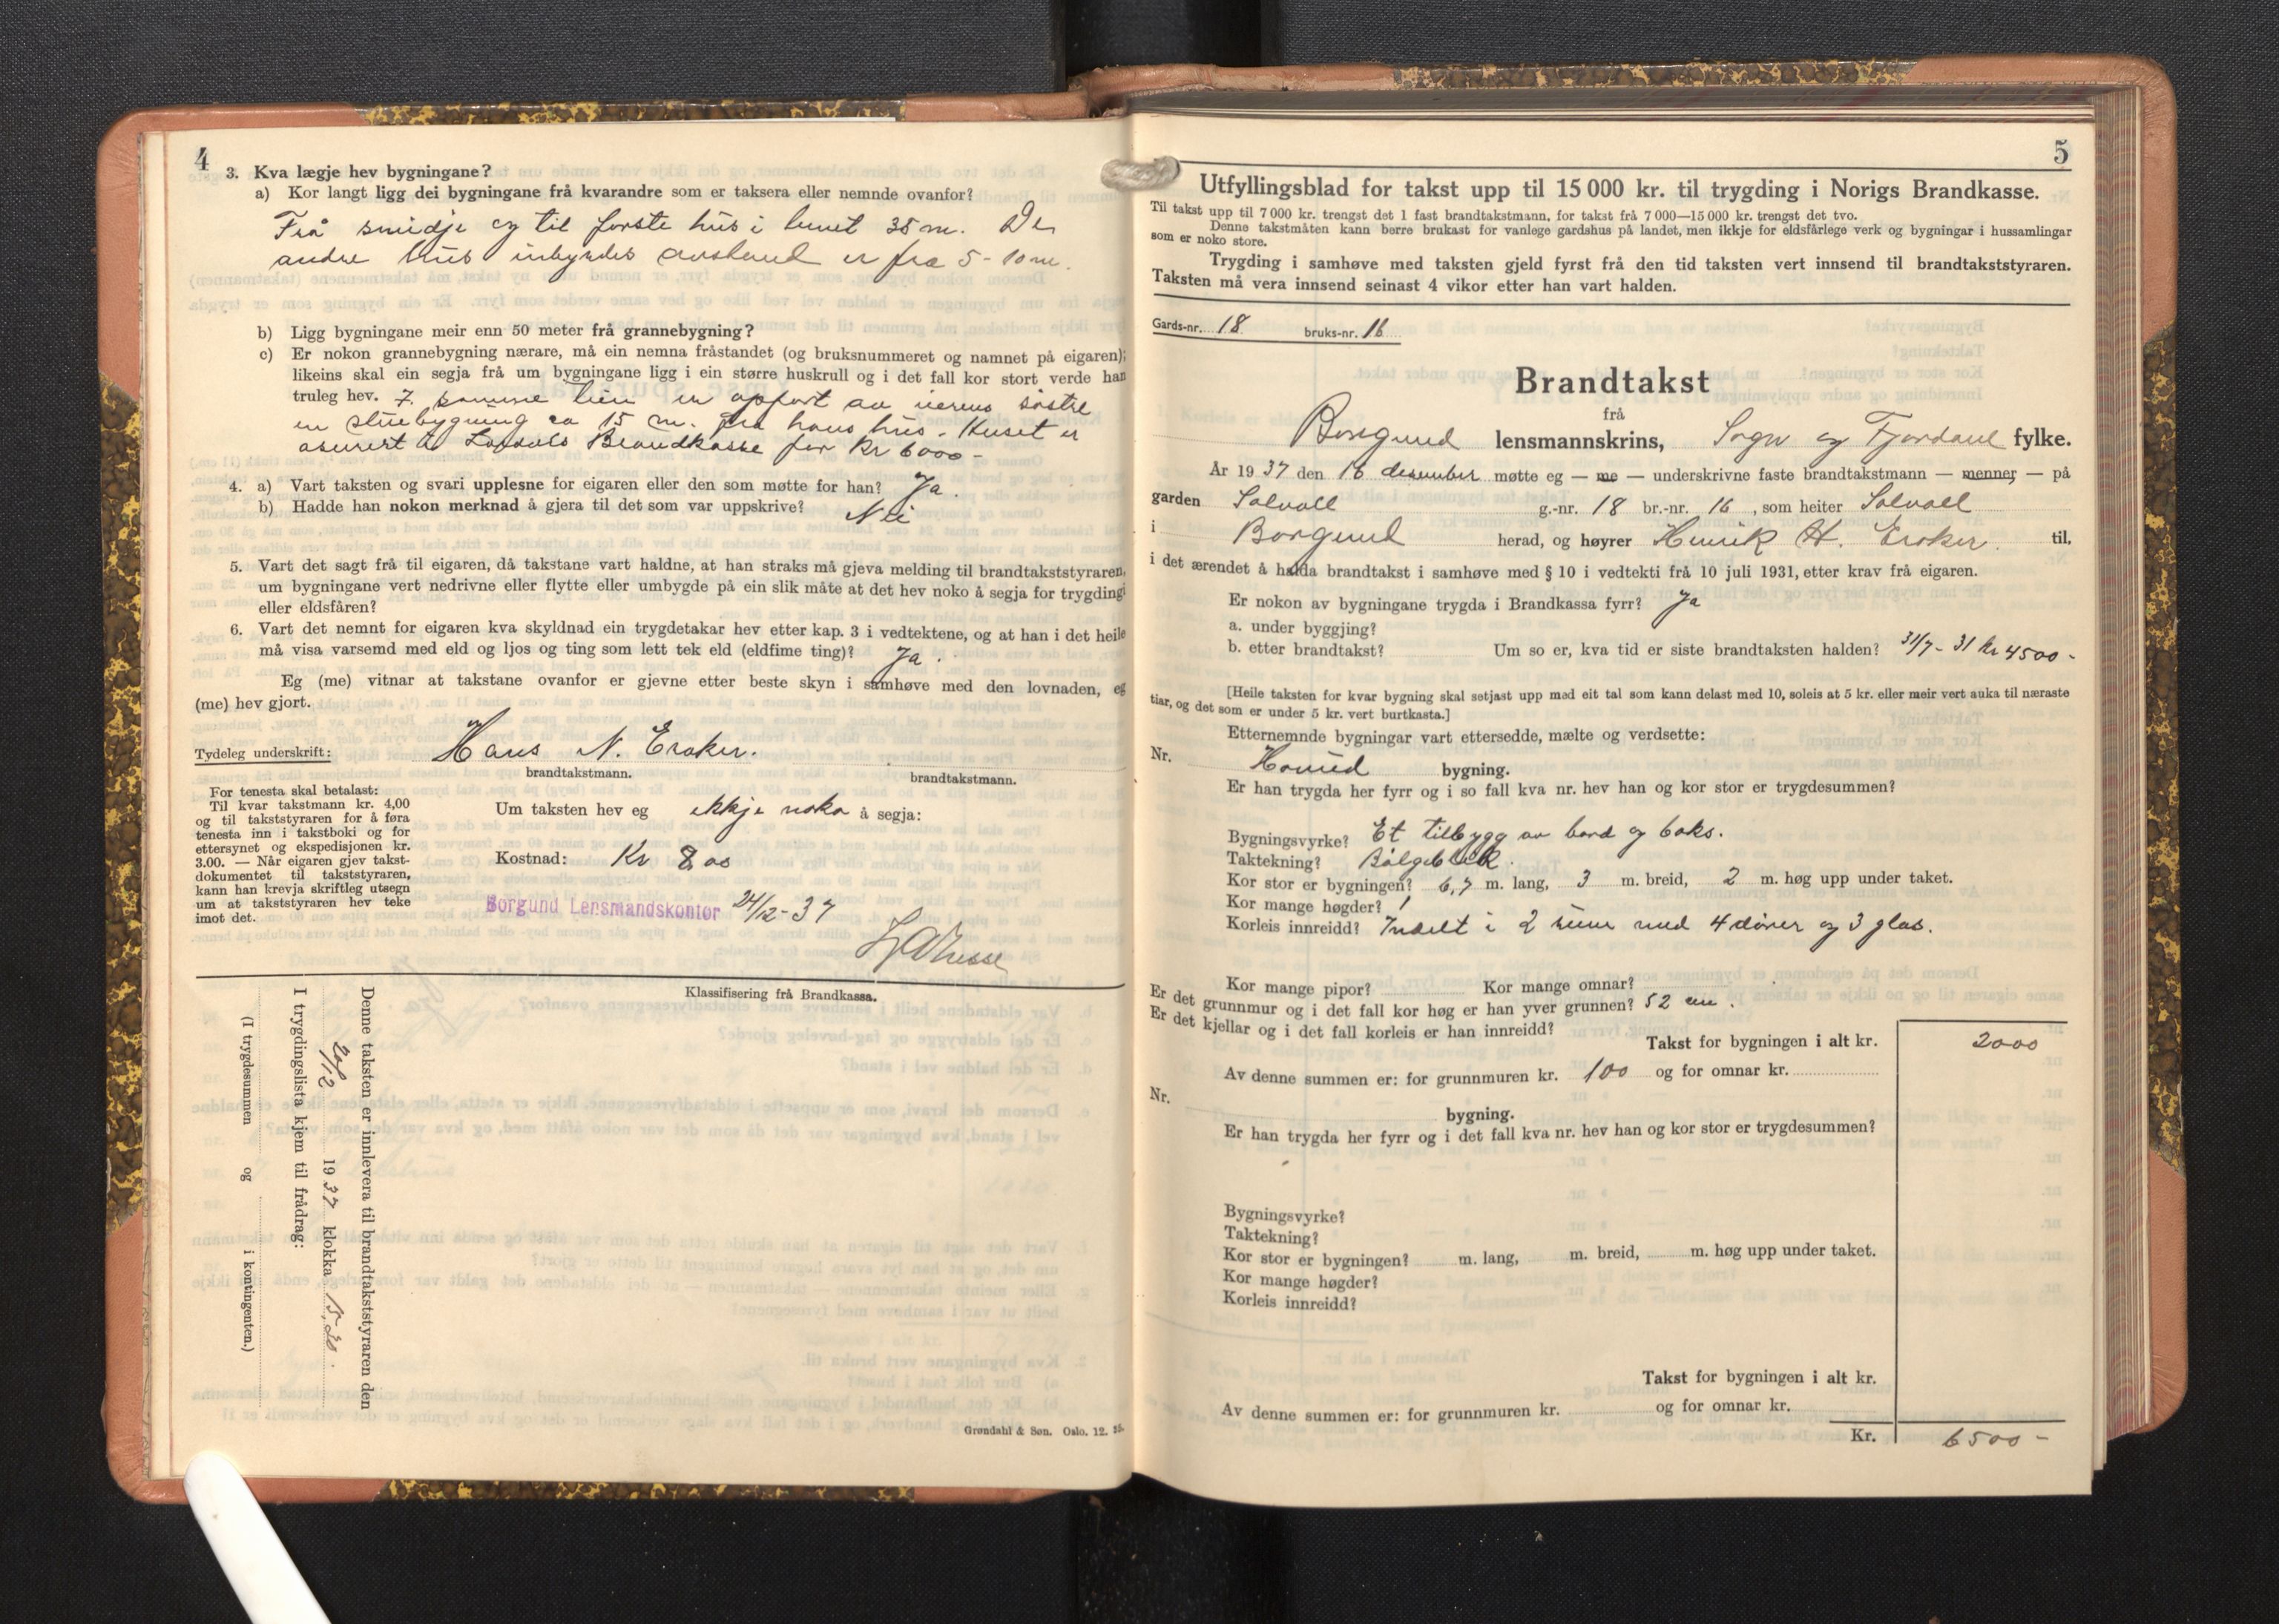 4
3. Kva lægje hev bygningane?
a) Kor langt ligg dei bygningane frå kvarandre som er taksera eller nemnde ovanfor?
Frå smidje og til første hus i tunet 35 m. De
andre hus inbyrdes avstand er fra 5-10 m.
b) Ligg bygningane meir enn 50 meter frå grannebygning?
c) Er nokon grannebygning nærare, må ein nemna fråstandet (og bruksnummeret og namnet på eigaren);
likeins skal ein segja frå um bygningane ligg i ein større huskrull og i det fall kor stort verde han
truleg hev. I samme tun er oppført av eierens søstre
en stuebygning ca 15 m. fra hans hus. Huset er
asurert i Brandkasse for Kr 6000-
4. a) Vart taksten og svari upplesne for eigaren eller den som møtte for han? Ja.
b) Hadde han nokon merknad å gjera til det som var uppskrive? Nei
5. Vart det sagt frå til eigaren, då takstane vart haldne, at han straks må gjeva melding til brandtakststyraren,
um bygningane vert nedrivne eller flytte eller umbygde på ein slik måte at det hev noko å segja for trygding
eller eldsfåren?
6. Vart det nemnt for eigaren kva skyldnad ein trygdetakar hev etter kap. 3 i vedtektene, og at han i det heile
må visa varsemd med eld og ljos og ting som lett tek eld (eldfime ting)? Ja.
Eg (me) vitnar at takstane ovanfor er gjevne etter beste skyn i samhøve med den lovnaden, eg
(me) hev gjort.
Tydeleg underskrift: Hans N. Eraker.
brandtakstmann. brandtakstmann.
For tenesta skal betalast:
Til kvar takstmann kr. 4,00
og til takststyraren for å føra
tenesta inn i takstboki og for
ettersynet og ekspedisjonen kr.
3.00. — Når eigaren gjev takst-
dokumentet til takststyraren,
kann han krevja skriftleg utsegn
um at takststyraren hev teke
imot det.
Um taksten hev eg ikkje noko å segja:
Kostnad: Kr 8,00
Borgund Lensmandskontor 24/12-37
Klassifisering frå Brandkassa.
Denne taksten er innlevera til brandtakststyraren den
20/12 1937 klokka 15,30.
I trygdingslista kjem til frådrag:
(I trygdesummen og i kontingenten.)
Grøndahl & Søn. Oslo. 12. 35.
5
Utfyllingsblad for takst upp til 15 000 kr. til trygding i Norigs Brandkasse.
Til takst upp til 7 000 kr. trengst det 1 fast brandtakstmann, for takst frå 7 000—15 000 kr. trengst det tvo.
Denne takstmåten kann berre brukast for vanlege gardshus på landet, men ikkje for eldsfårlege verk og bygningar i hussamlingar
som er noko store.
Trygding i samhøve med taksten gjeld fyrst frå den tid taksten vert innsend til brandtakststyraren.
Taksten må vera innsend seinast 4 vikor etter han vart halden.
Gards-nr. 18 bruks-nr. 16
Brandtakst
frå
Borgund lensmannskrins, Sogn og Fjordane fylke.
År 1937 den 16 desember møtte eg — me — underskrivne faste brandtakstmann — menner — på
garden Solvoll g.-nr. 18 br.-nr. 16, som heiter Solvoll
i Borgund herad, og høyrer Henrik H. Eraker. til,
i det ærendet å halda brandtakst i samhøve med § 10 i vedtekti frå 10 juli 1931, etter krav frå eigaren.
Er nokon av bygningane trygda i Brandkassa fyrr? Ja
a. under byggjing?
b. etter brandtakst? Um so er, kva tid er siste brandtaksten halden? 31/7-31 kr 4500-
[Heile taksten for kvar bygning skal setjast upp med eit tal som kann delast med 10, soleis at 5 kr. eller meir vert auka til næraste
tiar, og det som er under 5 kr. vert burtkasta.]
Etternemnde bygningar vart ettersedde, mælte og verdsette:
Nr. Hoved bygning.
Er han trygda her fyrr og i so fall kva nr. hev han og kor stor er trygdesummen?
Bygningsvyrke? Et tilbygg av bord og boks.
Taktekning? Bølgeblik.
Kor stor er bygningen? 6,7 m. lang, 3 m. breid, 2 m. høg upp under taket.
Kor mange høgder? 1
Korleis innreidd? Indelt i 2 rum med 4 dører og 3 glas.
Kor mange pipor? Kor mange omnar?
Er det grunnmur og i det fall kor høg er han yver grunnen? 52 cm.
Er det kjellar og i det fall korleis er han innreidd?
Takst for bygningen i alt kr. 2000
Av denne summen er: for grunnmuren kr. 100 og for omnar kr.
Nr. bygning.
Er han trygda her fyrr og i det fall kva nr. hev han og kor stor er trygdesummen?
Bygningsvyrke?
Taktekning?
Kor stor er bygningen? m. lang, m. breid, m. høg upp under taket.
Kor mange høgder?
Korleis innreidd?
Takst for bygningen i alt kr.
Av denne summen er: for grunnmuren kr. og for omnar kr.
Kr. 6500-